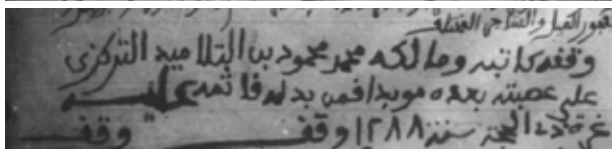 وقفه كاتبه ومالكه محمد محمود بن التلاميد التركزى
على عصبته بعده مؤبدا فمن بدله فاثمه عليه
غرة ذى الحجة سنة ١٢٨٨ وقف وقف